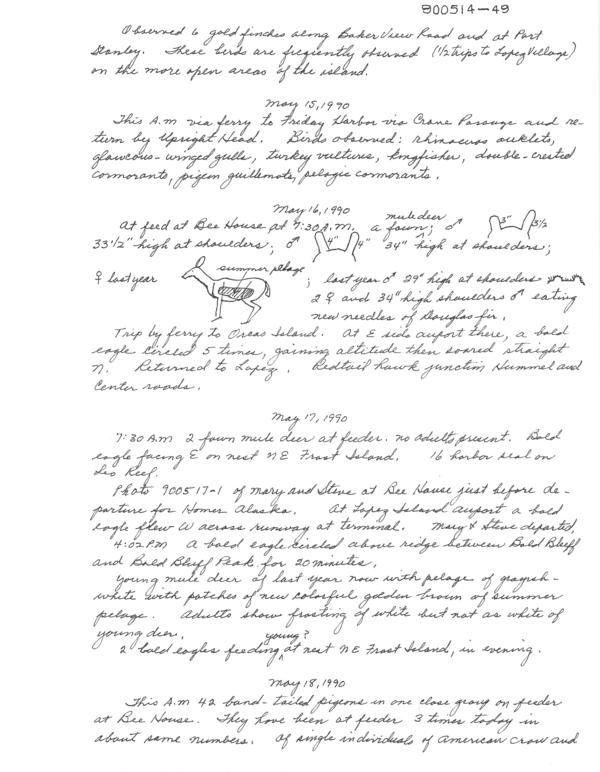 900514-49
Observed 6 goldfinches along Baker View Road and at Port
Stanley. These birds are freqiently observed (1/2 trips to Lopez Village)
on the more open areas of the island.
May 15, 1990
This A.m via ferry to Friday Harbor via Crane Passage and re-
turn by Upright Head. Birds observed: rhinoceros auklets,
glaucous-winged gulls, turkey vultures, kingfisher, double-crested
cormorants, pigeon guillemots, pelagic cormorants.
May 16, 1990
At feed at Bee House at 7:30 A.M. a mule deer fawn; ♂ 3" 3 1/2
33 1/2" high at shoulders; ♂ 4" 4" 34" high at shoulders;
♀ last year summer pelage ; last year ♂ 29" high at shoulders
2 ♀ and 34" high shoulders ♂ eating
new needles of Douglas fir.
Trip by ferry to Orcas Island. At E side airport there, a bald
eagle circled 5 times, gaining altitude then soared straight
N. Returned to Lopez. Redtail hawk junction Hummel and
Center roads.
May 17, 1990
7:30 A.M 2 fawn mule deer at feeder. no adults present. Bald
eagle facing E on nest NE Frost Island. 16 harbor seal on
Leo Reef.
Photo 900517-1 of Mary and Steve at Bee House just before de-
parture for Homer Alaska. At Lopez Island airport a bald
eagle flew W across runway at terminal. Mary & Steve departed.
4:02 PM A bald eagle circled above ridge between Bald Bluff
and Bald Bluff Peak for 20 minutes.
Young mule deer of last year now with pelage of grayish-
white with patches of new colorful golden brown of summer
pelage. Adults show frosting of white but not as white of
young deer.
2 bald eagles feeding young? at nest NE Frost Island, in evening.
May 18, 1990
This A.M 42 band-tailed pigeons in one close group on feeder
at Bee House. They have been at feeder 3 times today in
about same numbers. Of single individuals of American crow and